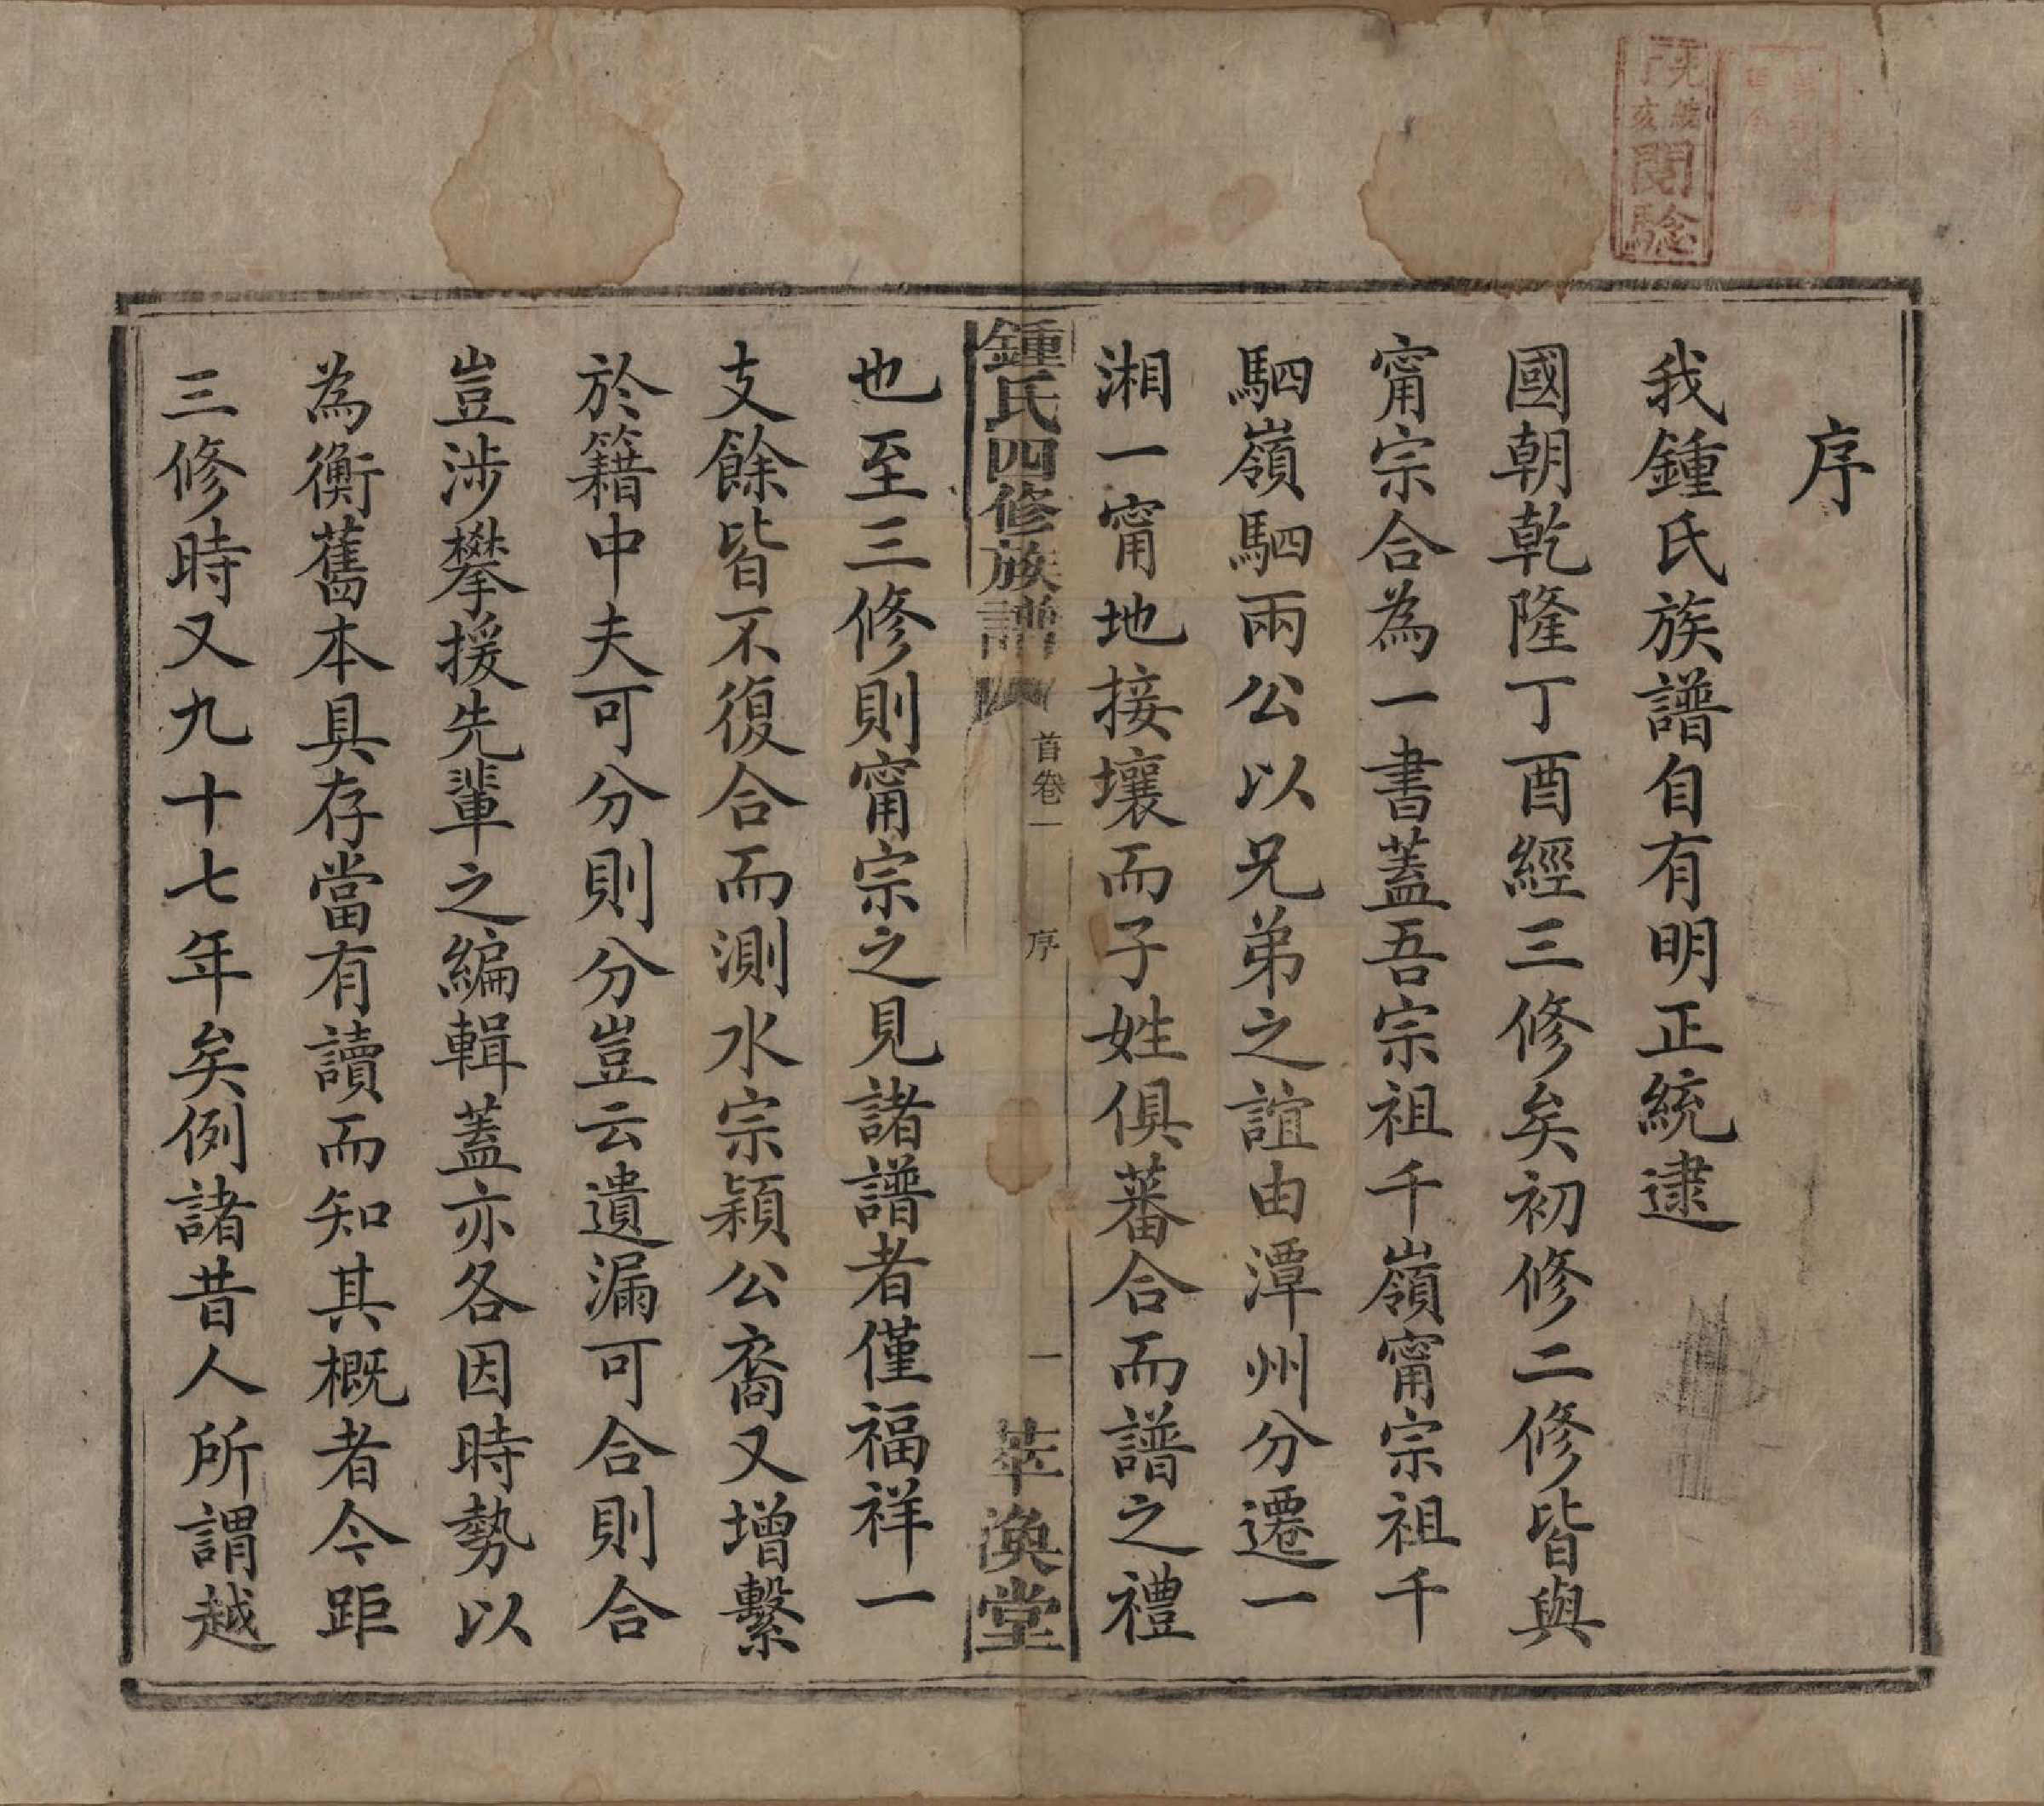 序
我鍾氏族譜自有明正統逮
國朝乾隆丁酉經三修矣初修二修皆與
甯宗合為一書蓋吾宗祖千嶺甯宗祖千
駟嶺駟兩公以兄弟之誼由潭州分遷一
湘一甯地接壤而子姓俱蕃合而譜之禮
鍾氏四修族譜
首卷一
序
一
萃渙堂
也至三修則甯宗之見諸譜者僅福祥一
支餘皆不復合而測水宗穎公裔又增繫
於籍中夫可分則分豈云遺漏可合則合
豈涉攀援先輩之編輯蓋亦各因時勢以
為衡舊本具存當有讀而知其概者今距
三修時又九十七年矣例諸昔人所謂越
光緒
丁亥
閱驗